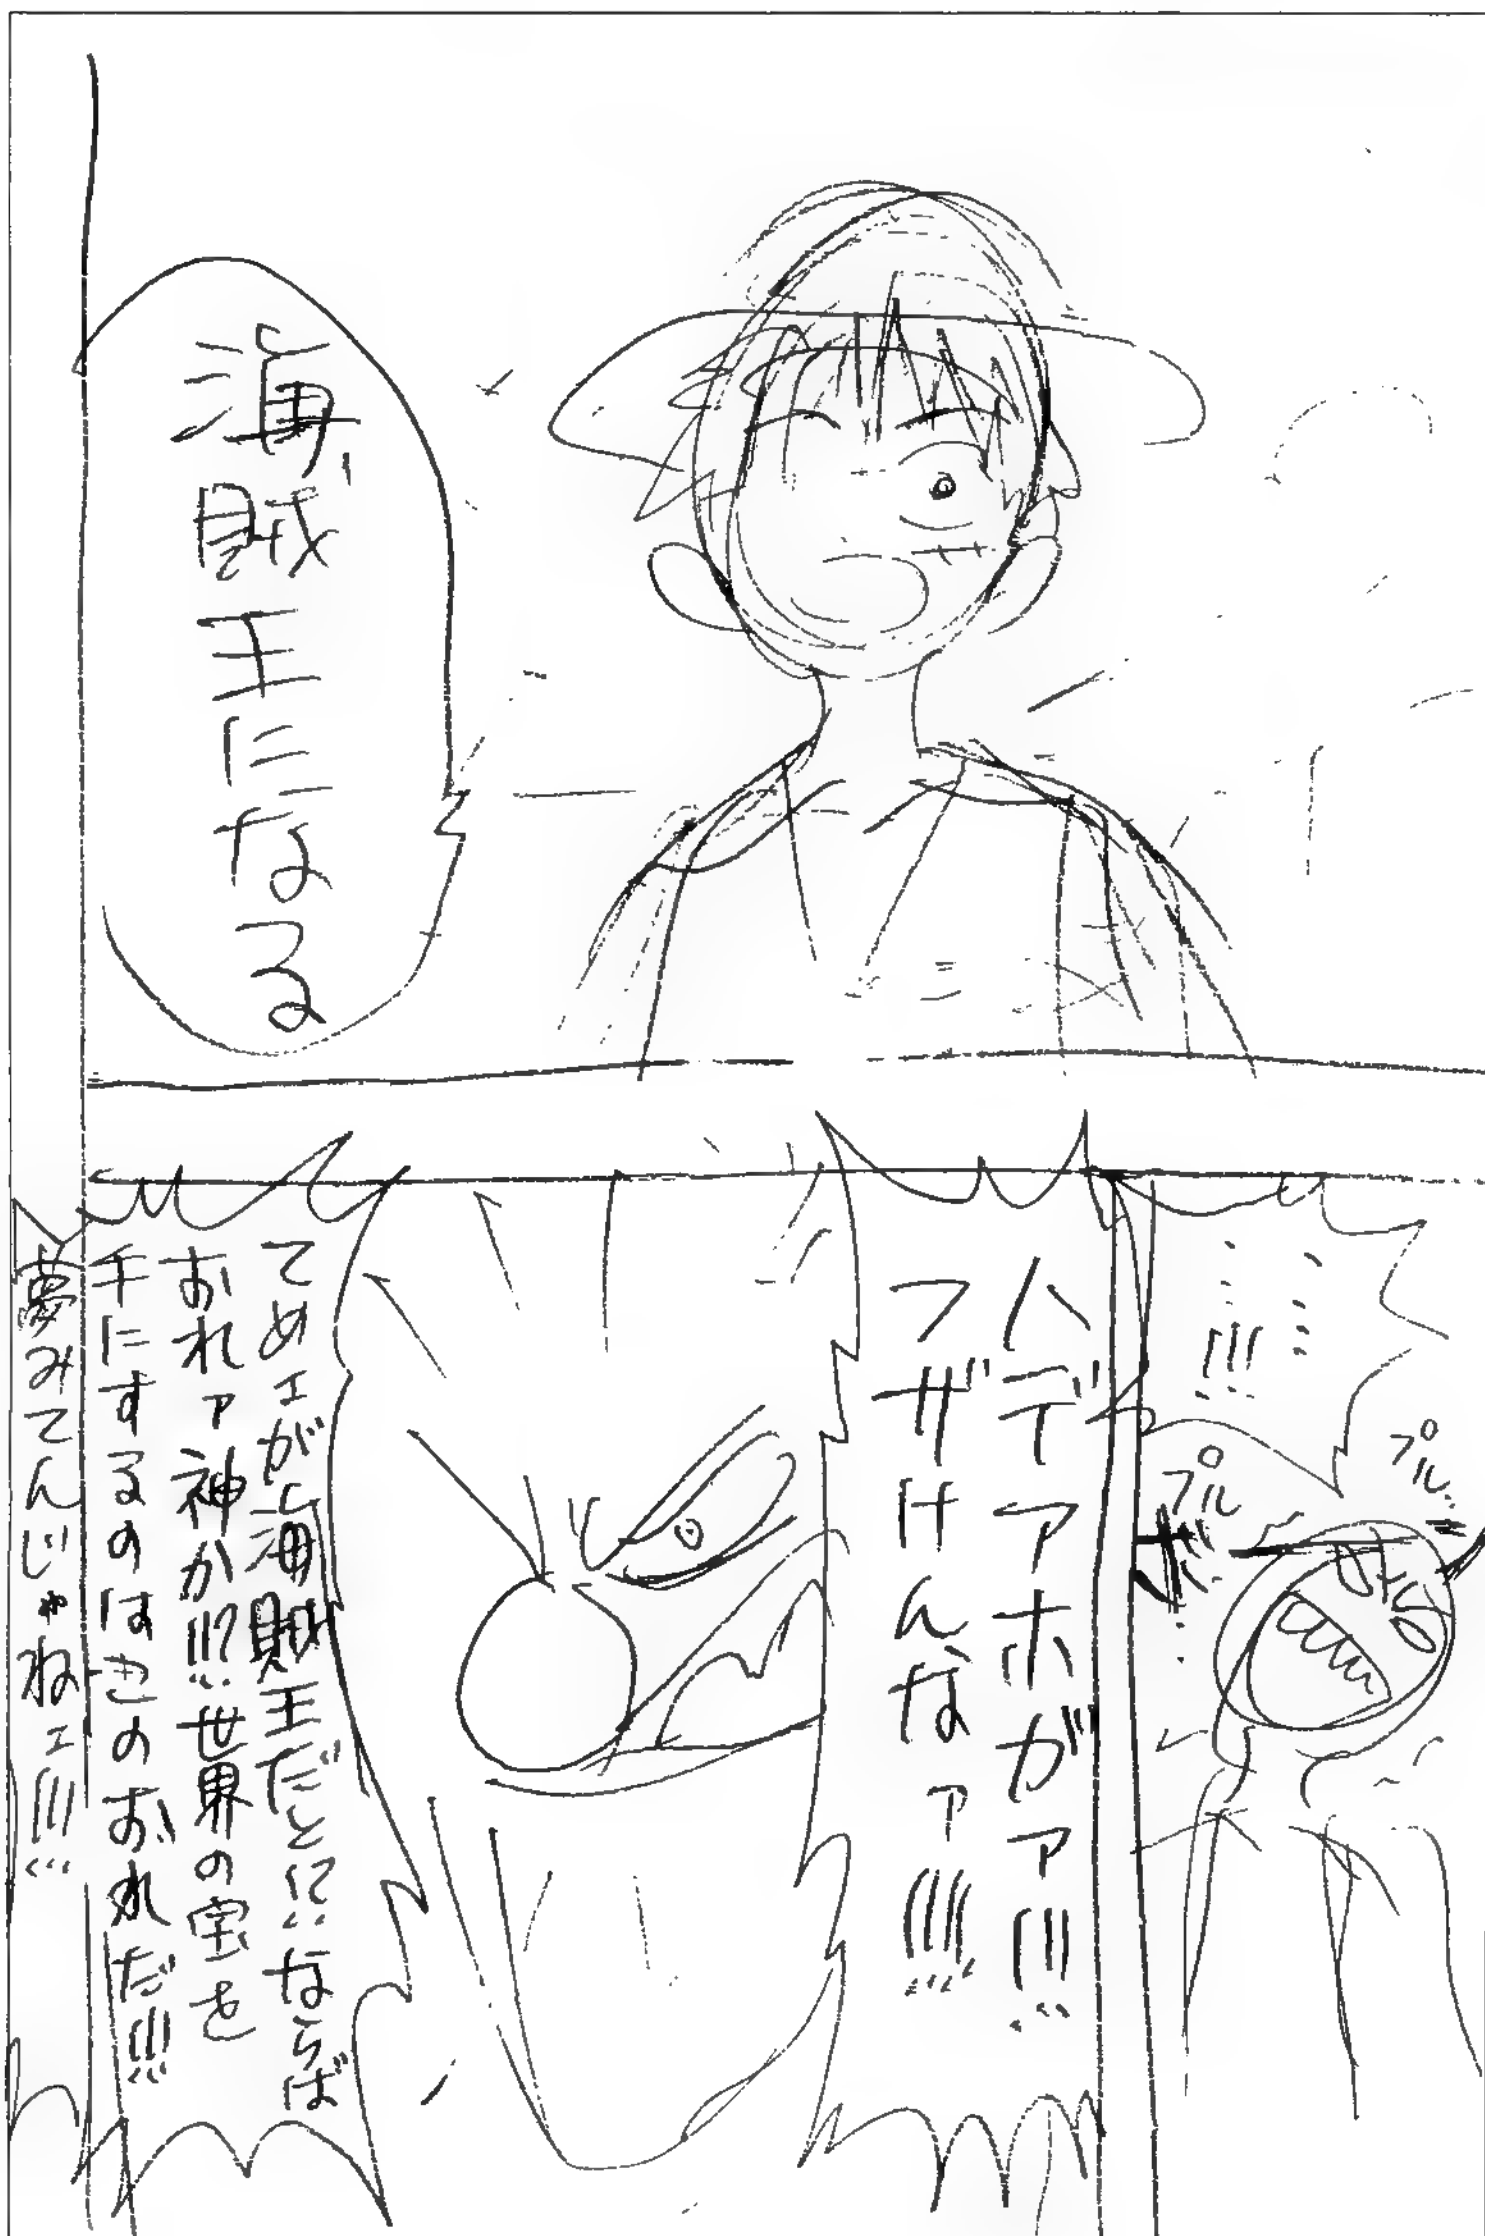 海賊王になる
……!!!
プル…
プル
ざ…
ハデアホがァ!!!
フザけんなァ!!!!
てめェが海賊王だとに!?ならば
おれァ神か!!!?世界の宝を
手にするのはこのおれだ!!!
夢みてんじゃねェ!!!